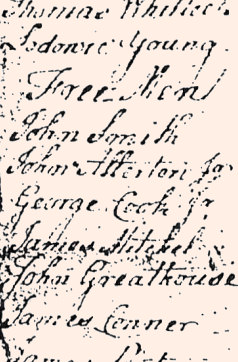 Thomas Whitlec
Lodowic Young
Free Men
John Smith
John Allerton Jr
George Cook Jr
James Mitchel
John Greathouse
James Conner
James